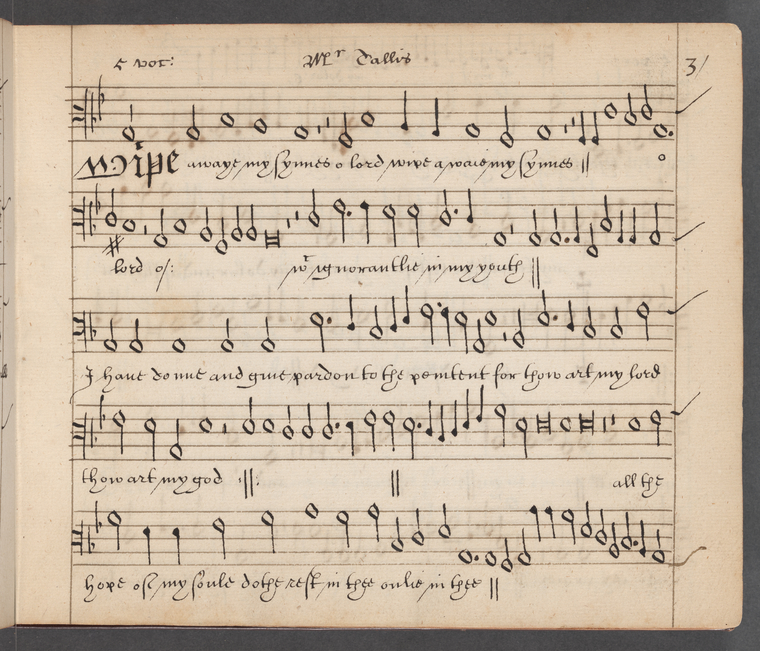 5 voc: Mr Tallis 3
Wipe awaye my synnes o lord wipe awaie my synnes o
lord of: wt ignorantlie in my youth
I haue donne and giue pardon to the penitent for thow art my lord
thow art my god all the
hope of my soule dothe rest in thee onlie in thee